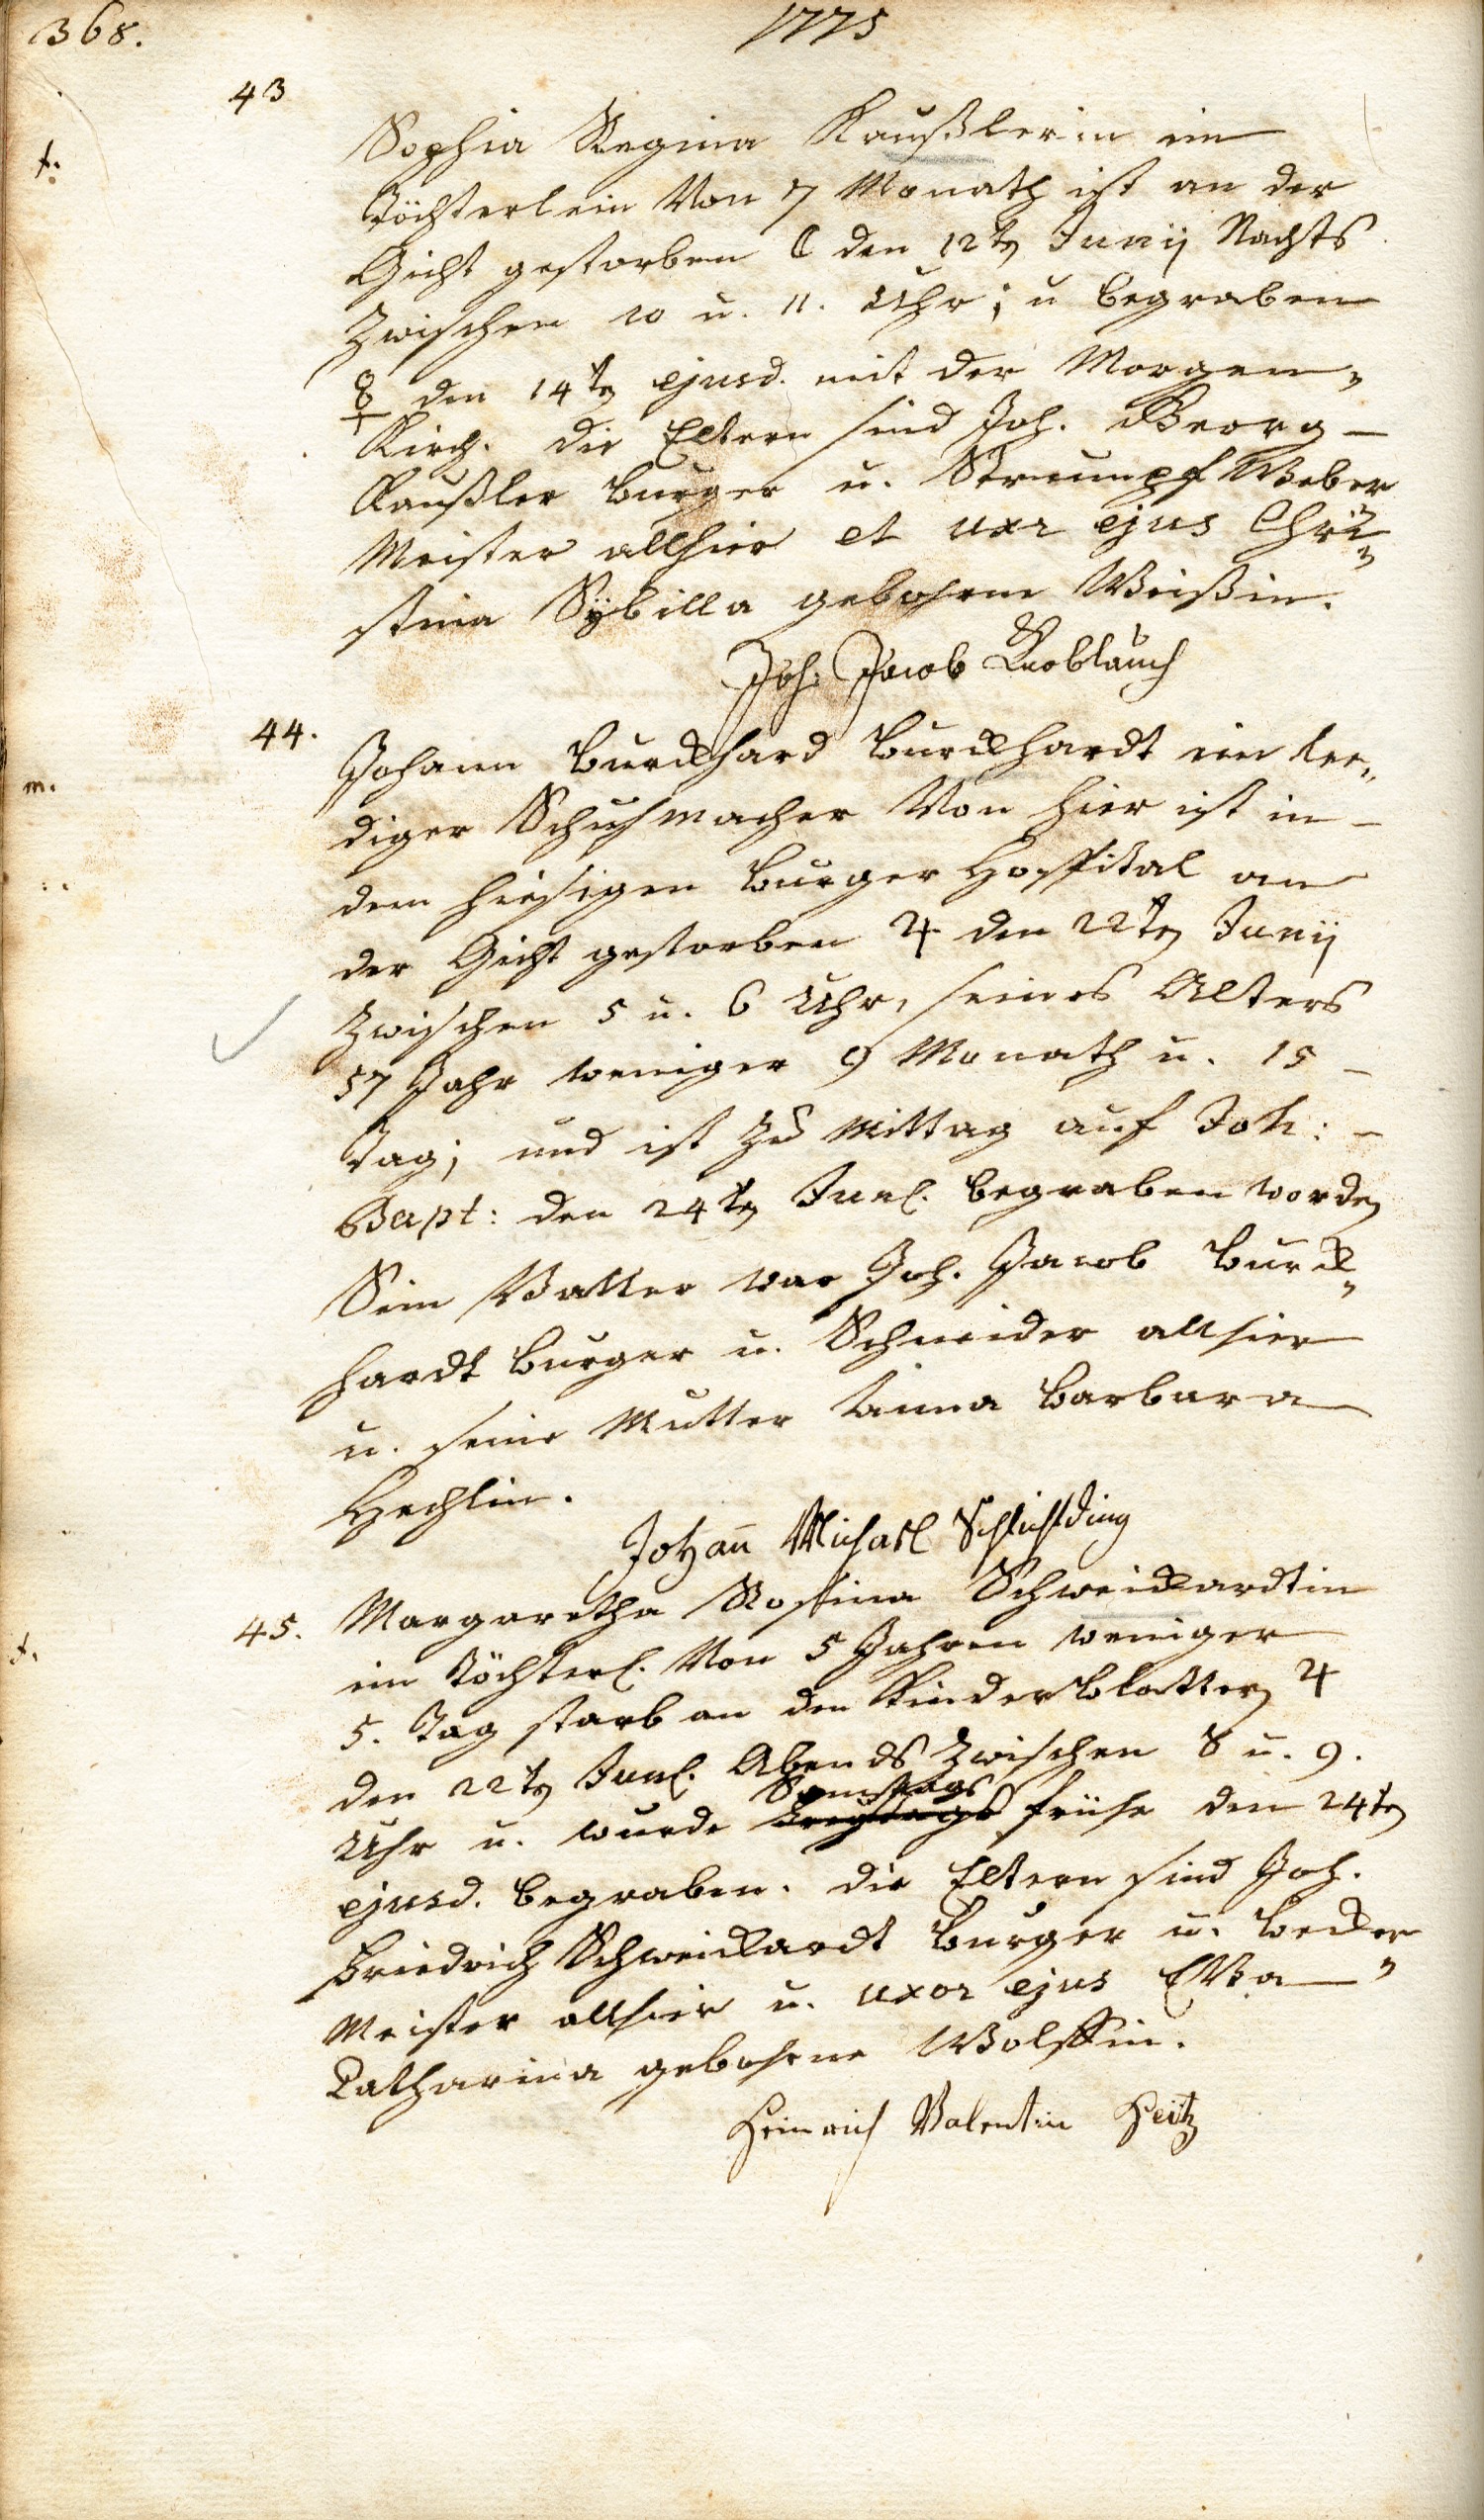 368.
1775
43
Sophia Regina Kaußlerin ein
t.
Töchterlein Von 7 Monath ist an der
Gicht gestorben ☾ den 12ten Junij Nachts
Zwischen 10 u. 11. Uhr; u begraben
☿ den 14ten ejusd. mit der Morgen„
Kirch. die Eltern sind Joh. Georg –
Kaußler Burger u. Strumpf Weber
Meister allhier et uxr ejus Chri„
stina Sÿbilla gebohrne Weißin.
Joh: Jacob Knoblauch
44.
Johann Burckhard Burckhardt ein lee„
m.
diger Schuhmacher Von hier ist in –
dem hiesigen Burger Hospital an
der Gicht gestorben ♃ den 22ten Junij
Zwischen 5 u. 6 Uhr, seines Alters
57 Jahr weniger 9 Monath u. 15 –
Tag; und ist zu Mittag auf Joh: –
Bapt: den 24ten Junl. begraben worden
Sein Vatter war Joh. Jacob Burck„
hardt Burger u. Schneider allhier
u. seine Mutter Anna Barbara
Hechlin.
Johañ Michael Schlichtding
45. Margaretha Rosina Schweickardtin
t.
ein Töchterl. Von 5 Jahren weniger
5. Tag starb an den Kinderblattern ♃
den 22ten Junl. Abends Zwischen 8 u. 9.
Samstags
Uhr u. wurde früh den 24ten
ejusd. begraben. die Eltern sind Joh.
Friedrich Schweickardt Burger u. Becker
Meister allhier u. uxor ejus EVa „
Catharina gebohrne Wolffin.
Heinrich Valentin Heitz